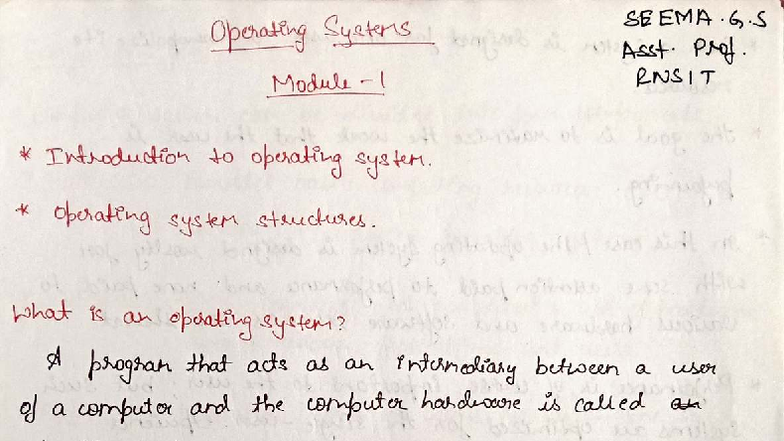 Operating Systems
SEEMA.G.S
Asst. Prof.
RNSIT
Module-1
* Introduction to operating system.
* Operating system structures.
What is an operating system?
A program that acts as an intermediary between a user
of a computer and the computer hardware is called an